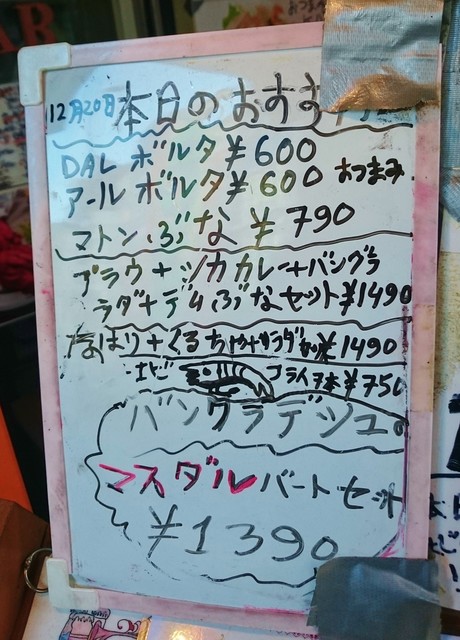 12月20日 本日のおすす
DAL ボルタ ¥600
アール ボルタ ¥600 おつまみ
マトン ぶな ¥790
ブラウ+シカカレー+バングラ
ラダ+デムぶなセット¥1490
+くるちゃ+サラダ ¥1490
エビ フライ ¥750
バングラデシュの
マスダルバートセット
¥1390